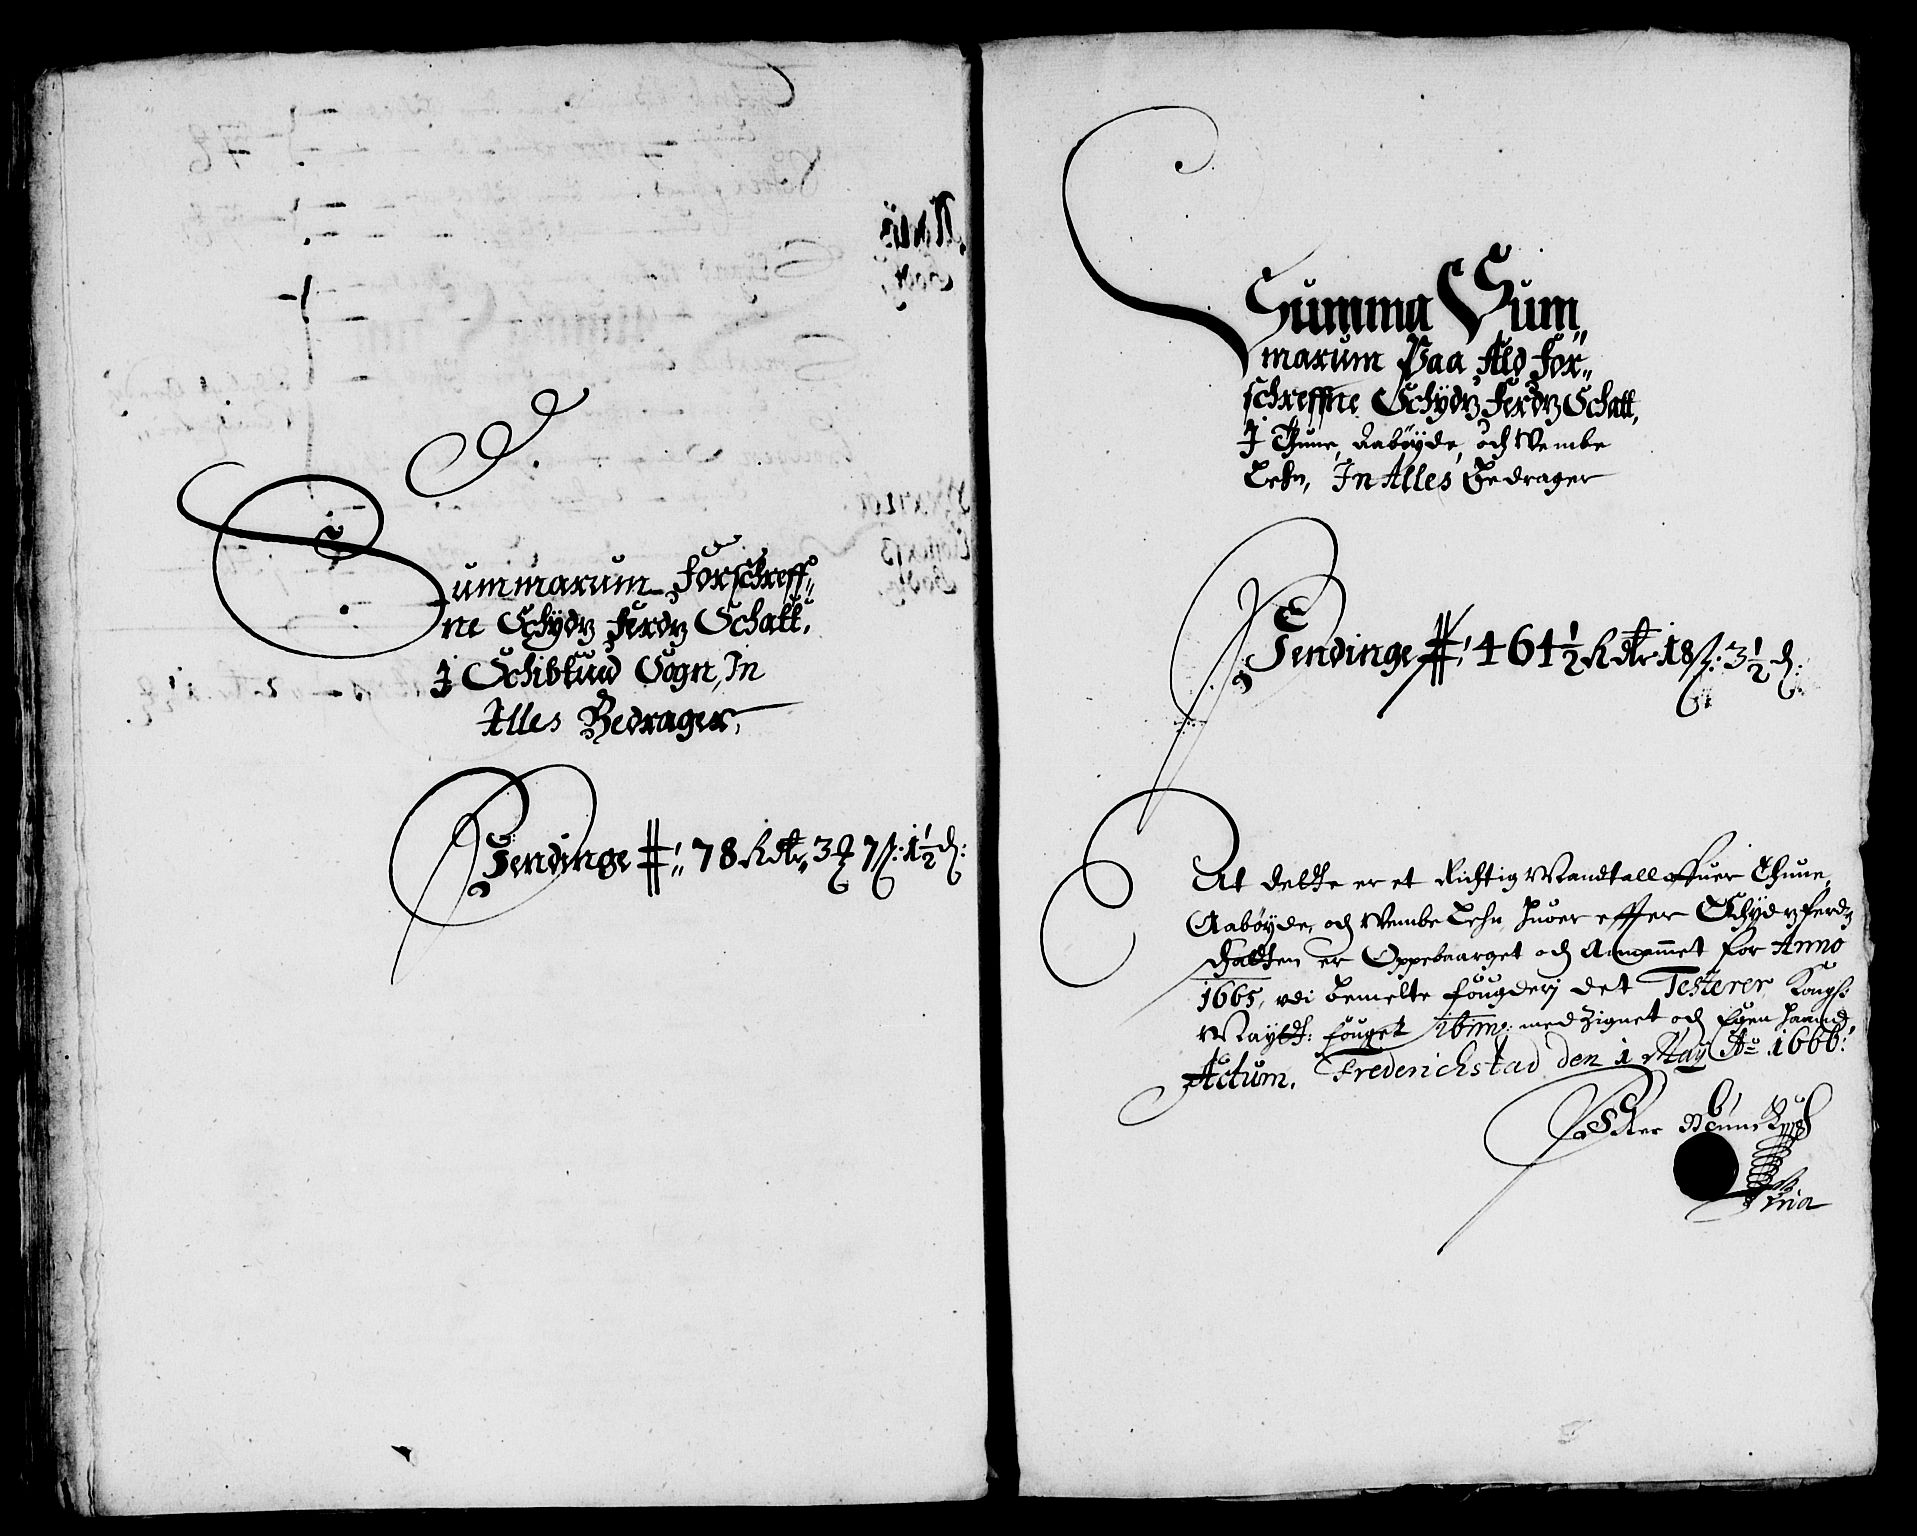 Summarum Forschreff„
ne Schydtz Ferdtz Schatt,
J Schibtuud Sogn, In
Alles Bedrager,
Pendinge 78 Rdtr 3 ₰ 7 ß: 1½ d:
Summa Sum„
marum Paa Ald For„
schreffne Schydtz Ferdtz Schatt,
J Thune, Aabøyde, och Wembe
Lehn, In Alles Bedrager
Pendinge 464½ Rdtr 18 ß: 3½ d:
At dette er et Richtig Mandtall offuer Thune,
Aabøyde, och Wembe Lehn huor effter Schydtzferdtz
schatten er Oppebaarget och Annammet for Anno
1665, vdi bemelte fougderj det Testerer Kongl:
Maytts: fouget ibm: med Zignet och Egen haand,
Actum, Frederichstad den 1 May Ao 1666:
Mpria